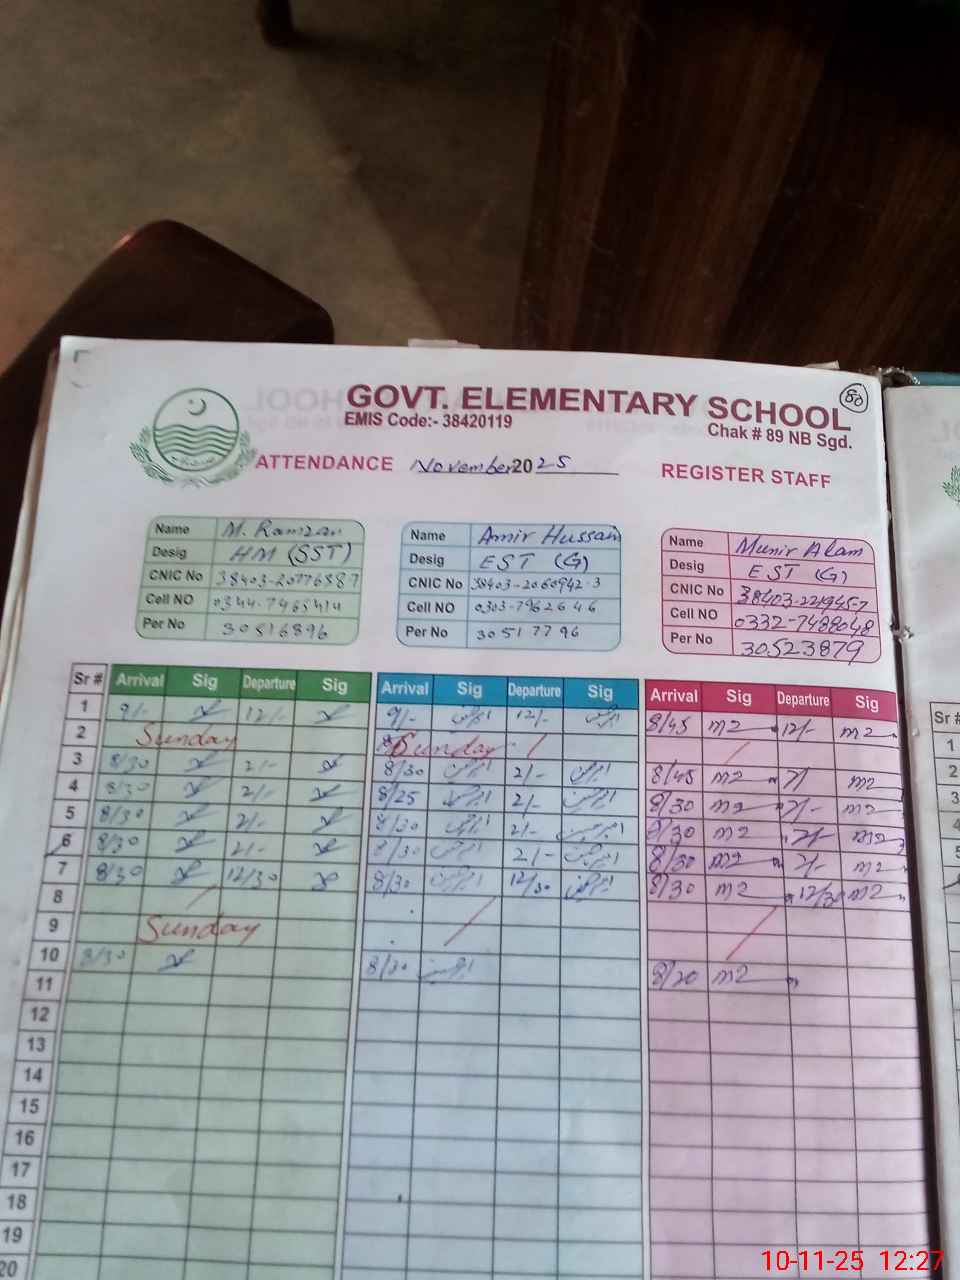 80
GOVT. ELEMENTARY SCHOOL
EMIS Code:- 38420119
Chak # 89 NB Sgd.
ATTENDANCE November 2025
REGISTER STAFF
Name M. Ramzan
Desig HM (SST)
CNIC No 38403-2077688-7
Cell NO
Per No 30516896
Name Amir Hussain
Desig EST (G)
CNIC No 38403-2060942-3
Cell NO 0303-7962646
Per No 30517796
Name Munir Alam
Desig EST (G)
CNIC No
Cell NO 0332-7488048
Per No 30523879
Sr # Arrival Sig Departure Sig Arrival Sig Departure Sig Arrival Sig Departure Sig
1 9/- 12/- 9/- 12/- 8/45 m2 12/- m2
2 Sunday Sunday
3 8/30 2/- 8/30 2/- 8/45 m2 2/- m2
4 8/30 2/- 8/25 2/- 8/30 m2 2/- m2
5 8/30 2/- 8/30 2/- 8/30 m2 2/- m2
6 8/30 2/- 8/30 2/- 8/30 m2 2/- m2
7 8/30 12/30 8/30 12/30 8/30 m2 12/30 m2
8
9 Sunday
10 8/30 8/30 m2
11
12
13
14
15
16
17
18
19
20
Sr #
1
2
3
4
5
10-11-25 12:27